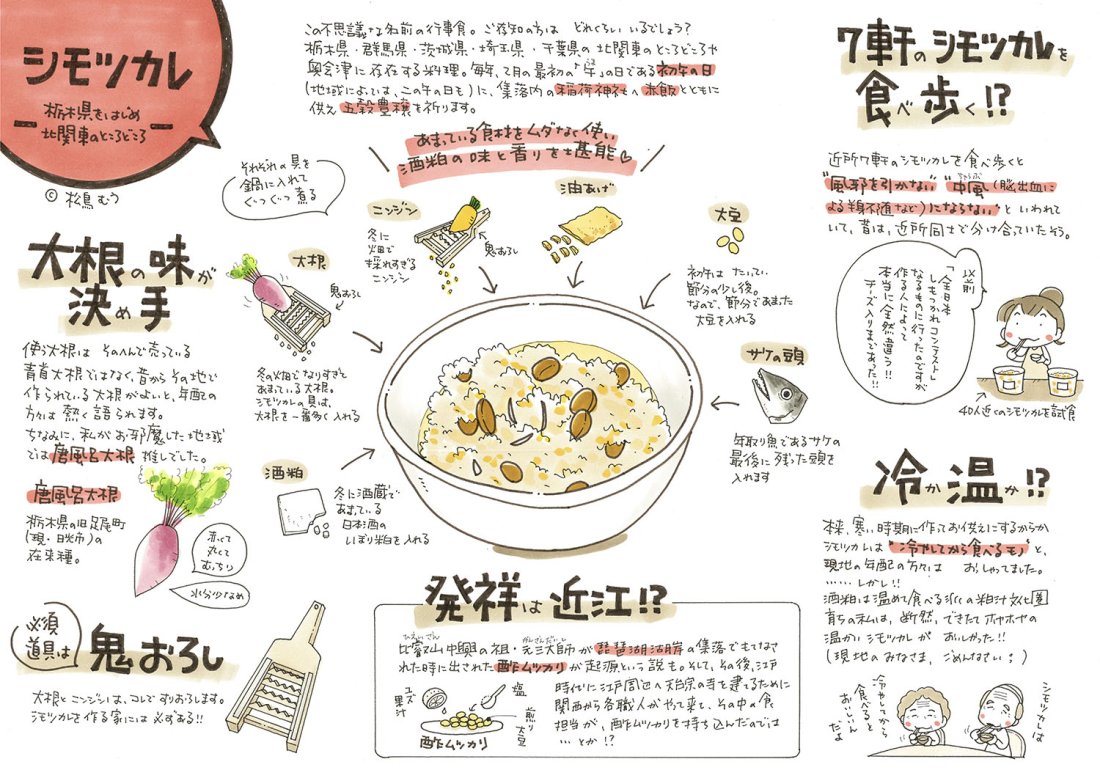 シモツカレ
栃木県をはじめ
北関東のところどころ
© 松鳥むう
この不思議な名前の行事食。ご存知の方は どれくらいいるでしょう?
栃木県・群馬県・茨城県・埼玉県・千葉県の北関東のところどころや
奥会津に存在する料理。毎年、2月の最初の「午」の日である初午の日
(地域によっては、二の午の日も)に、集落内の稲荷神社へ赤飯とともに
供え五穀豊穣を祈ります。
あまっている食材をムダなく使い
酒粕の味と香りを堪能♡
それぞれの具を
鍋に入れて
ぐつぐつ煮る
ニンジン
冬に
畑で
採れすぎる
ニンジン
鬼おろし
油あげ
大豆
初午は たいてい
節分の少し後。
なので、節分であまった
大豆を入れる
大根
鬼おろし
冬の畑でなりすぎて
あまっている大根。
シモツカレの具は、
大根を一番多く入れる
サケの頭
年取り魚であるサケの
最後に残った頭を
入れます
酒粕
冬に酒蔵で
あまっている
日本酒の
しぼり粕を入れる
大根の味が
決め手
使う大根は そのへんで売っている
青首大根ではなく、昔からその地で
作られている大根がよいと、年配の
方々は熱く語られます。
ちなみに、私がお邪魔した地域
では唐風呂大根推しでした。
唐風呂大根
栃木県の旧足尾町
(現・日光市)の
在来種。
赤くて
丸くて
むっちり
水分少なめ
必須
道具は
鬼おろし
大根とニンジンは、コレですりおろします。
シモツカレを作る家には必ずある!!
発祥は近江!?
比叡山中興の祖・元三大師が琵琶湖湖岸の集落でもてなさ
ひえいざん
がんざんだいし
れた時に出された酢ムツカリが起源という説も。そして、その後、江戸
時代に江戸周辺へ天台宗の寺を建てるために
関西から各職人がやって来て、その中の食
担当が、酢ムツカリを持ち込んだのでは
…とか!?
ユズ
果汁
塩
煎り
大豆
酢ムツカリ
7軒のシモツカレを
食べ歩く!?
近所7軒のシモツカレを食べ歩くと
"風邪を引かない""中風(脳出血に
よる半身不随など)にならない"といわれて
いて、昔は、近所同士で分け合っていたそう。
以前
「全日本
しもつかれコンテスト」
なるものに行ったのですが
作る人によって
本当に全然違う!!
チーズ入りまであった!!
40人近くのシモツカレを試食
冷か温か!?
本来、寒い時期に作ってお供えにするからか
シモツカレは"冷やしてから食べるモノ"と、
現地の年配の方々は おっしゃってました。
……しかし!!
酒粕は温めて食べる派の粕汁文化圏
育ちの私は、断然、できたてホヤホヤの
温かいシモツカレが おいしかった!!
(現地のみなさま、ごめんなさい;)
シモツカレは
冷やしてから
食べると
おいしいん
だよ